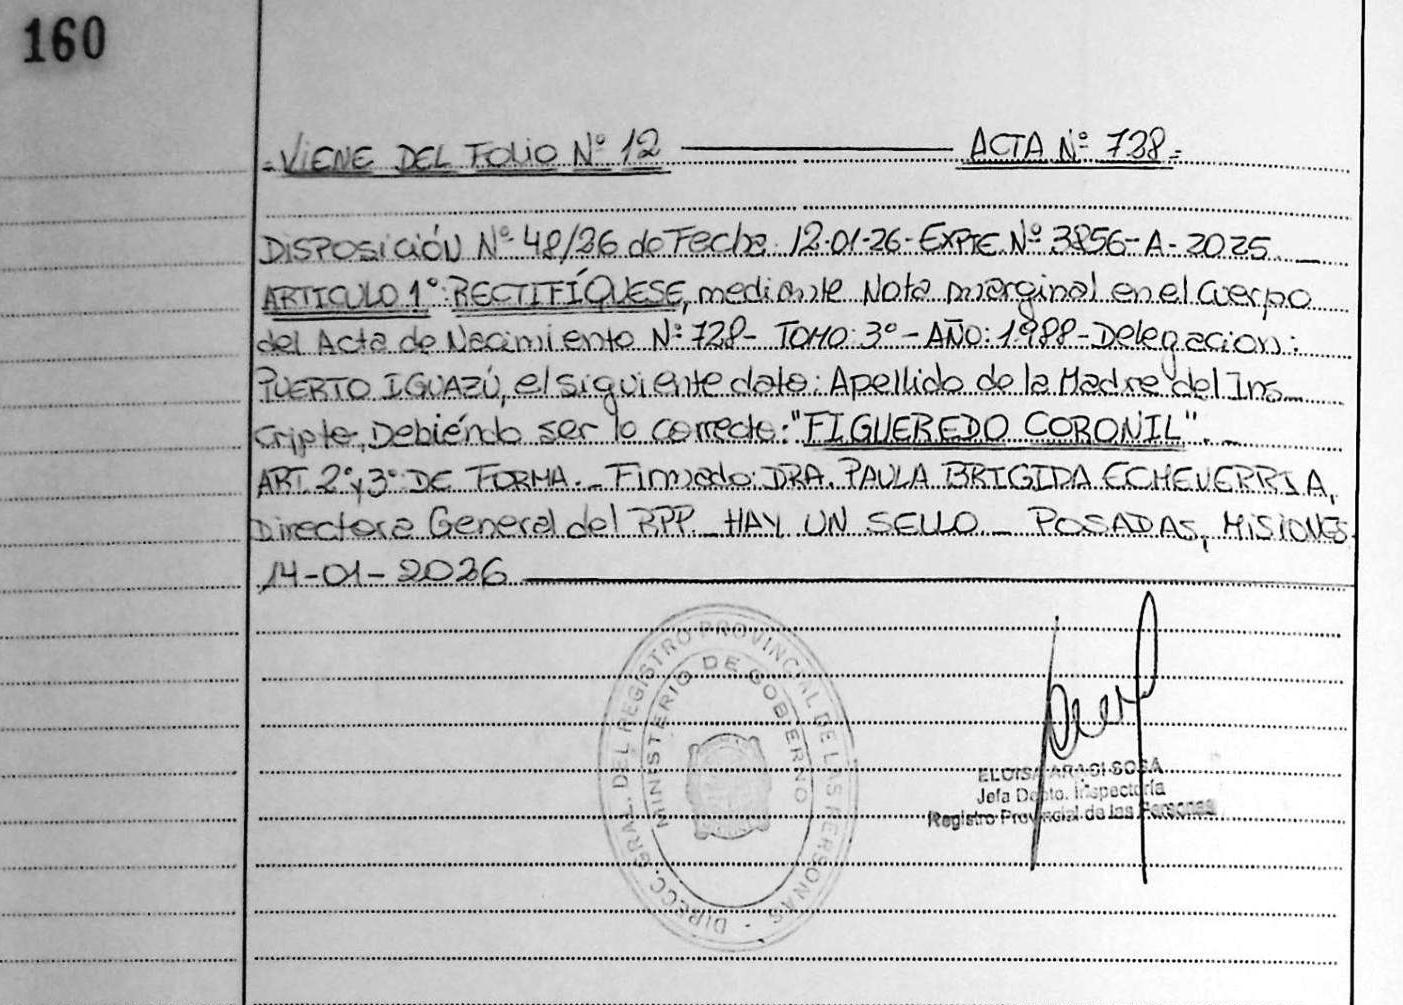 160
- VIENE DEL FOLIO Nº 12 ACTA Nº 728.-
DISPOSICIÓN Nº 48/26 de Fecha: 12-01-26 - EXPTE. Nº 3856-A-2025.
ARTICULO 1º: RECTIFÍQUESE, mediante Nota marginal en el Cuerpo
del Acta de Nacimiento Nº: 728 - TOMO: 3º - AÑO: 1988 - Delegacion:
PUERTO IGUAZÚ, el siguiente dato: Apellido de la Madre del Ins
cripto, Debiéndo ser lo correcto: "FIGUEREDO CORONIL".-
ART. 2º y 3º DE FORMA.- Firmado: DRA. PAULA BRIGIDA ECHEVERRIA,
Directora General del RPP.- HAY UN SELLO.- POSADAS, MISIONES.
14-01-2026
DIRECC. GRAL. DEL REGISTRO PROVINCIAL DE LAS PERSONAS -
MINISTERIO DE GOBIERNO
ELOISA ARAGI SOSA
Jefa Dpto. Inspectoría
Registro Provincial de las Personas